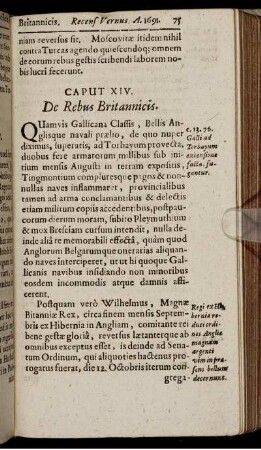 Britannicis. Recens Vernus. A. 1691. 75
niam reversus sit. Moscovitæ itidem nihil
contra Turcas agendo quiescendoq; omnem
de eorum rebus gestis scribendi laborem no-
bis lucri fecerunt.
CAPUT XIV.
De Rebus Britannicis.
QUamvis Gallicana Classis, Bellis An-
glisque navali prælio, de quo nuper
diximus, superatis, ad Torbayum provecta,
duobus fere armatorum millibus sub ini-
tium mensis Augusti in terram expositis,
Tingmontium compluresque pagos & non-
nullas naves inflammaret, provincialibus
tamen ad arma concclamantibus & delectis
etiam militum copiis accedentibus, postpau-
corum dierum moram, subito Pleymuthium
& mox Bresciam cursum intendit, nulla de-
inde aliâ re memorabili effectâ, quàm quod
Anglorum Belgarumque onerarias aliquan-
do naves interciperet, ut ut hi quoque Gal-
licanis navibus insidiando non minoribus
eosdem incommodis atque damnis affi-
cerent.
Postquam verò Wilhelmus, Magnæ
Britanniæ Rex, circa finem mensis Septem-
bris ex Hibernia in Angliam, comitante re
bene gestæ gloriâ, reversus lætanterque ab
omnibus exceptus esset, is deinde ad Sena-
tum Ordinum, qui aliquoties hactenus pro-
rogatus fuerat, die 12. Octobris iterum con-
grega-
c. 13. 76.
Galli ad
Torbayum
extensione
facta. fu-
gantur.
Regi ex Hi-
bernia re-
duci ordi-
nes Angliæ
magnam
argenti
vim in præ-
sens bellum
decernunt.